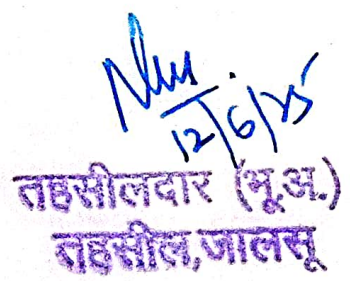 12/6/25
तहसीलदार (भू.अ.)
तहसील,जालसू